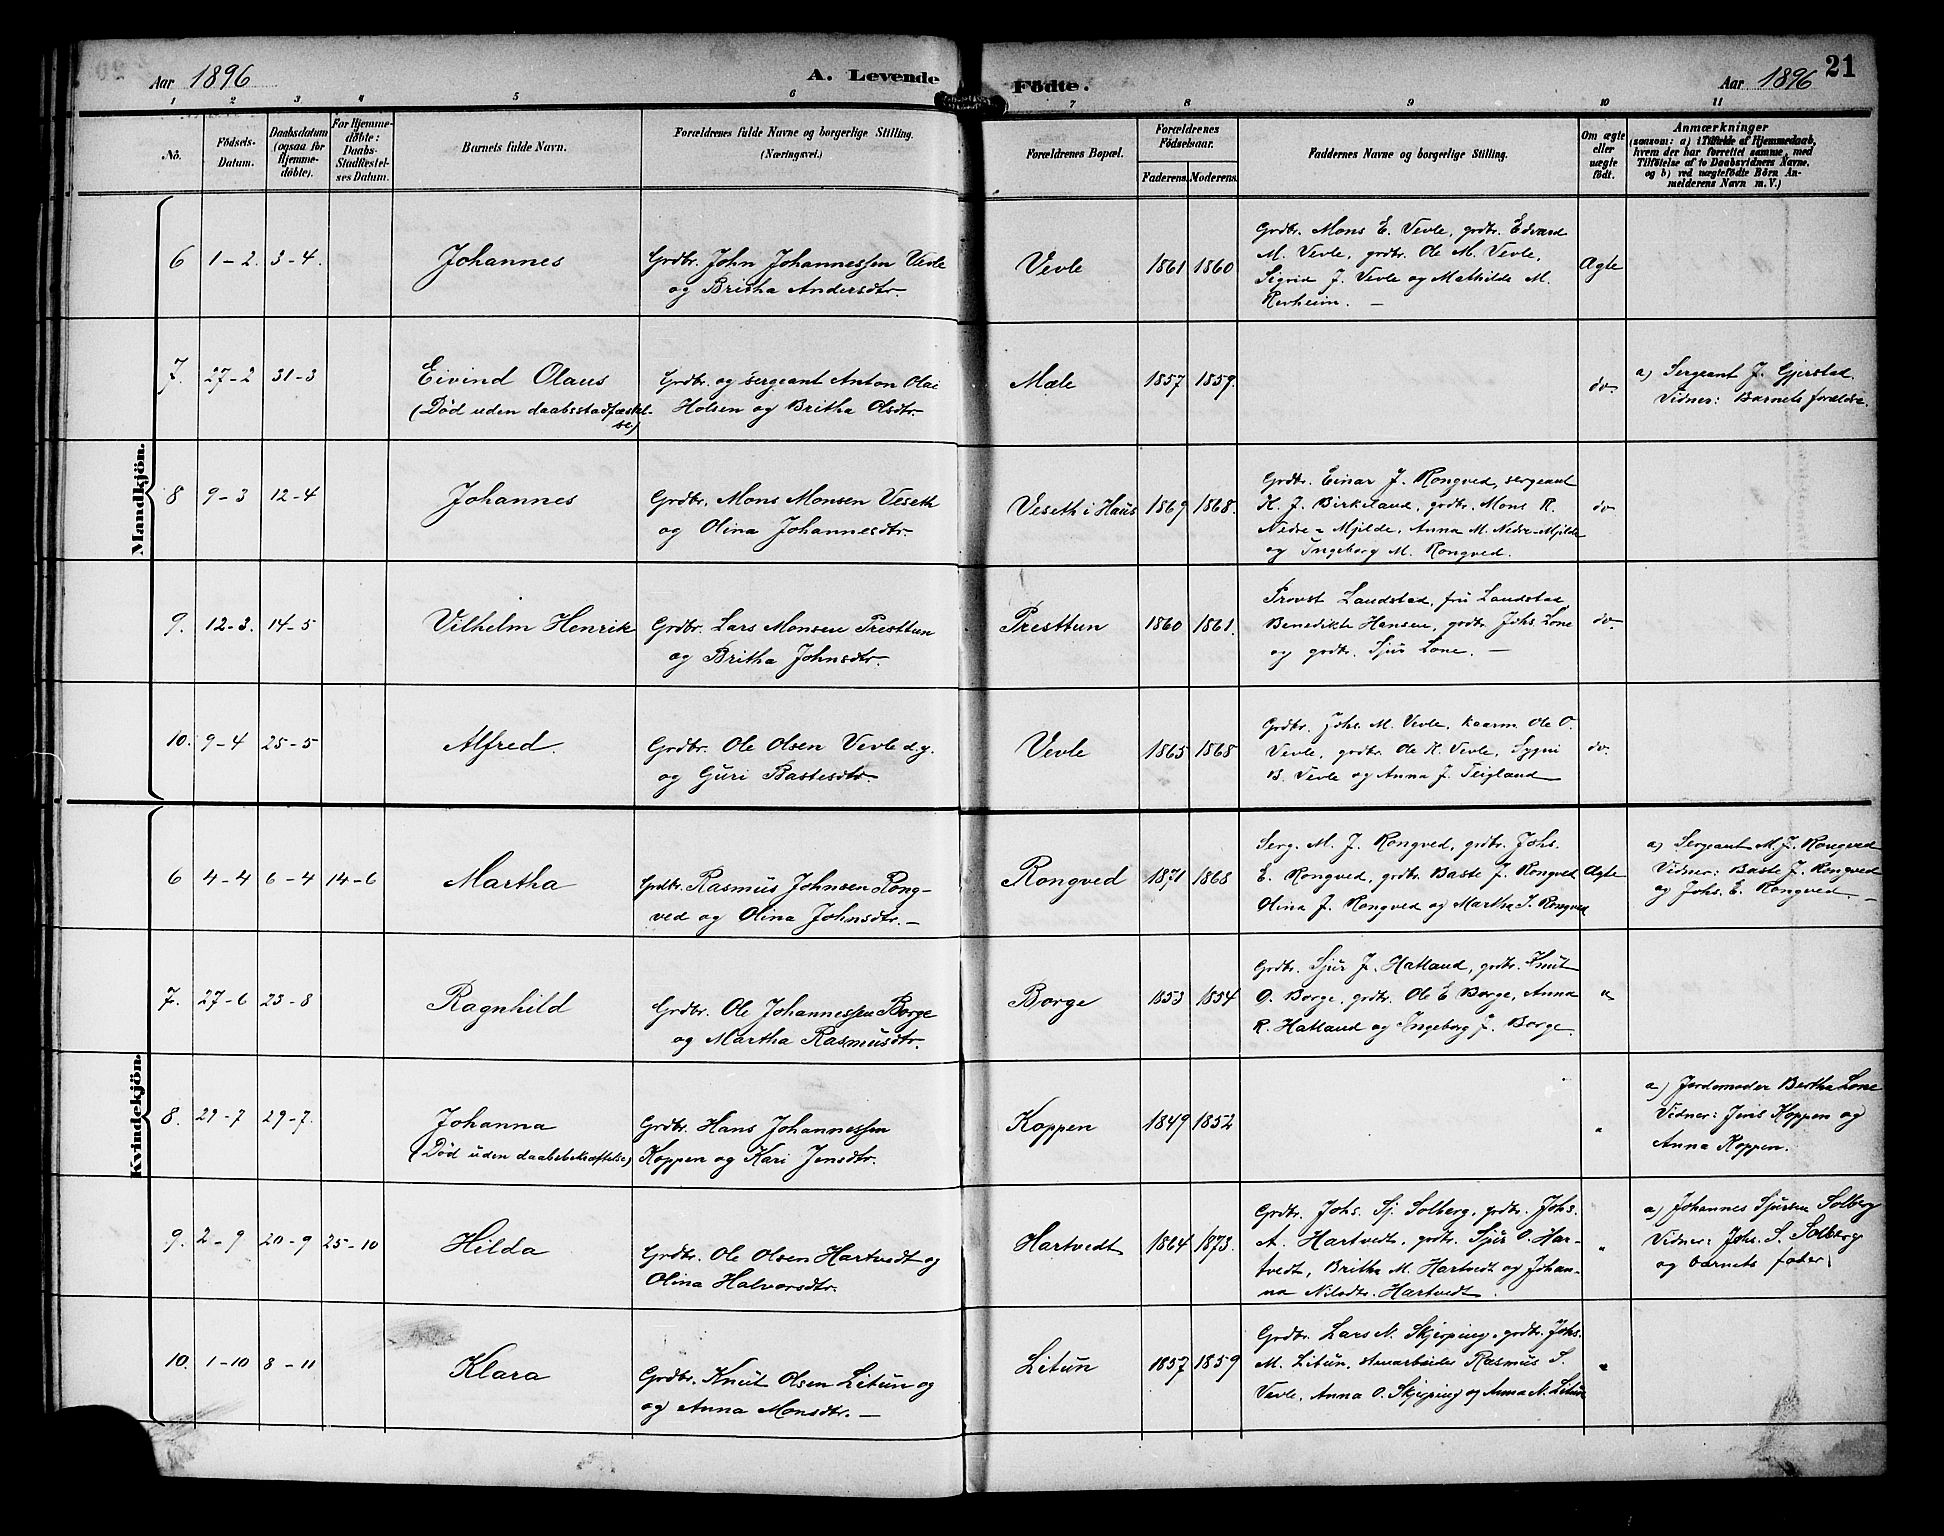 Aar 1896
A. Levende
Födte.
Aar 1896
21
1 2 3 4 5 6 7 8 9 10 11
No.
Födsels-Datum.
Daabsdatum (ogsaa for Hjemme-döbte).
For Hjemme-döbte: Daabs-Stadfestel-ses Datum.
Barnets fulde Navn.
Forældrenes fulde Navne og borgerlige Stilling.
(Næringsvei.)
Forældrenes Bopæl.
Forældrenes Födselsaar.
Faderens. Moderens.
Faddernes Navne og borgerlige Stilling.
Om ægte eller uægte födt.
Anmærkninger
(saasom: a) i Tilfælde af Hjemmedaab,
hvem der har forrettet samme, med
Tilföielse af to Daabsvidners Navne,
og b) ved uægtefödte Börn An-
melderens Navn m. V.)
Mandkjön.
6 1-2. 3-4. Johannes
Grdbr. John Johannessen Vevle
og Britha Andersdtr.
Vevle 1861 1860
Grdbr. Mons E. Vevle, grdbr. Edvard
M. Vevle, grdbr. Ole M. Vevle,
Sigrid J. Vevle og Mathilde M.
Revheim. –
Ægte
7. 27-2 31-3 Eivind Olaus
(Död uden daabsstadfæstel-
se)
Grdbr. og sergeant Anton Olai
Holsen og Britha Olsdtr.
Mæle 1857 1859.
do
a) Sergeant J. Gjerstad.
Vidner: Barnets forældre.
8 9-3 12-4 Johannes
Grdbr. Mons Monsen Veseth
og Olina Johannesdtr.
Veseth i Haus 1869 1868.
Grdbr. Einar J. Rongved, sergeant
K. J. Birkeland, grdbr. Mons R.
Nedre-Mjelde, Anna M. Nedre-Mjelde
og Ingeborg M. Rongved.
do
9. 12-3. 14-5 Vilhelm Henrik
Grdbr. Lars Monsen Presttun
og Britha Johnsdtr.
Presttun 1860 1861.
Provst Landstad, fru Landstad,
Benedikte Hansen, grdbr. Johs. Lone
og grdbr. Sjur Lone. –
do.
10. 9-4 25-5 Alfred.
Grdbr. Ole Olsen Vevle d.y.
og Guri Bastesdtr.
Vevle 1865 1868
Grdbr. Johs. M. Vevle, kaarm. Ole O.
Vevle, grdbr. Ole K. Vevle, Sygni
B. Vevle og Anna J. Teigland
do.
Kvindekjön.
6 4-4 6-4 14-6 Martha
Grdbr. Rasmus Johnsen Rong-
ved og Olina Johnsdtr. –
Rongved 1871 1868
Serg. M. J. Rongved, grdbr. Johs.
E. Rongved, grdbr. Baste J. Rongved
Olina J. Rongved og Martha S. Rongved
Ægte
a) Sergeant M. J. Rongved
Vidner: Baste J. Rongved
og Johs. E. Rongved. –
7. 27-6 23-8 Ragnhild
Grdbr. Ole Johannessen Borge
og Martha Rasmusdtr.
Borge 1853 1854
Grdbr. Sjur J. Hatland, grdbr. Knut
O. Borge, grdbr. Ole E Borge, Anna
R. Hatland og Ingeborg J. Borge.
"
8. 29-7 29-7. Johanna
(Död uden daabsbekræftelse)
Grdbr. Hans Johannessen
Koppen og Kari Jensdtr.
Koppen 1849 1852
"
a) Jordemoder Bertha Lone
Vidner: Jens Koppen og
Anna Koppen.
9. 2-9 20-9 25-10 Hilda
Grdbr. Ole Olsen Hartvedt og
Olina Halvorsdtr.
Hartvedt 1864 1873.
Grdbr. Johs. Sj. Solberg, grdbr. Johs.
A. Hartvedt, grdbr. Sjur O. Har-
tvedt, Britha M. Hartvedt og Johan-
na Nilsdtr. Hartvedt.
"
a) Johannes Sjursen Solberg
Vidner: Johs. S. Solberg
og barnets fader.
10. 1-10 8-11 Klara
Grdbr. Knut Olsen Litun og
og Anna Monsdtr. –
Litun 1857 1859
Grdbr. Lars N. Skjerping, grdbr. Johs.
M. Litun, Rasmus S.
Vevle, Anna O. Skjerping og Anna N. Litun
"